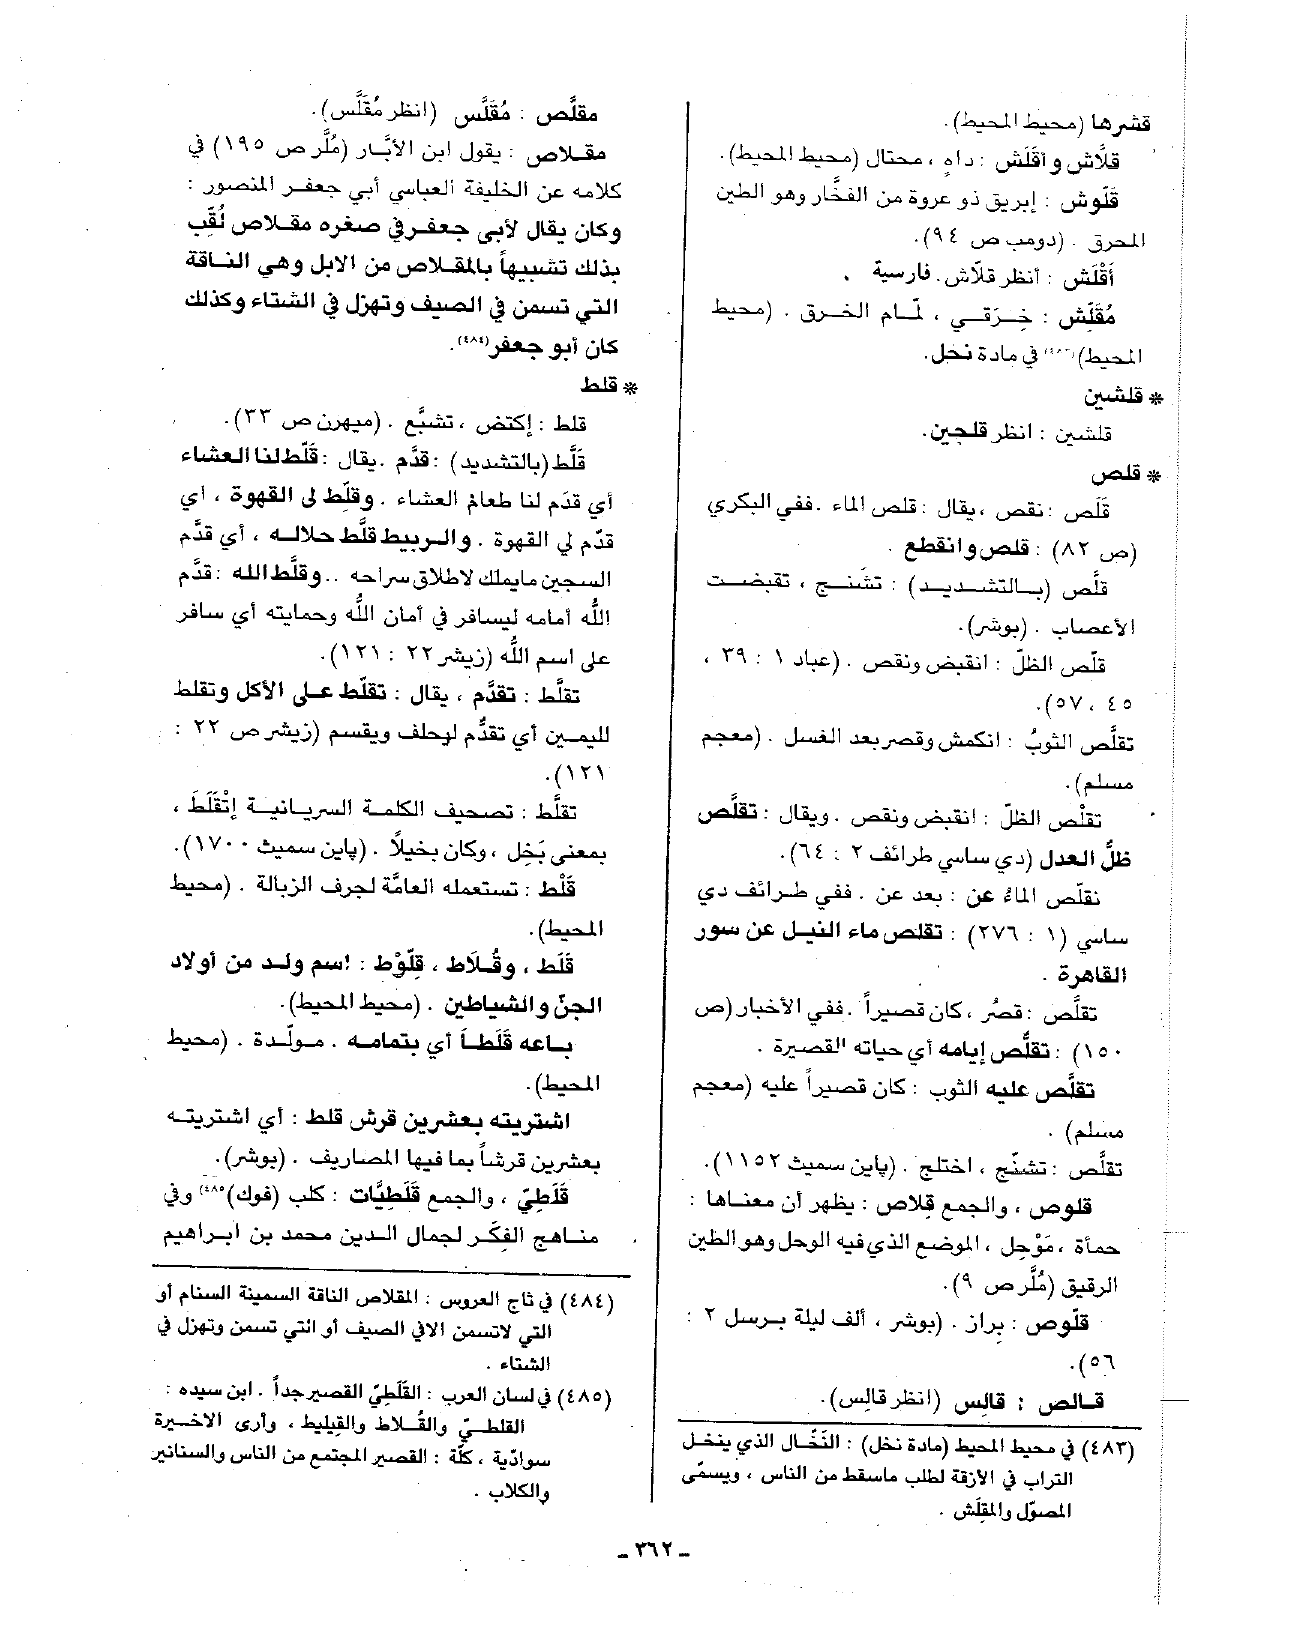 قشرها (محيط المحيط).
قلّاش وأقلَش : داهٍ ، محتال (محيط المحيط).
قَلّوش : إبريق ذو عروة من الفخَّار وهو الطين
المحرق . (دومب ص ٩٤).
أَقْلَش : أنظر قلّاش. فارسية .
مُقَلِّش : خِرَقي ، لمّام الخرق . (محيط
المحيط) في مادة نخل.
* قلشين
قلشين : انظر قلجين.
* قلص
قَلَص : نقص ، يقال : قلص الماء . ففي البكري
(ص ٨٢) : قلص وانقطع .
قلَّص (بالتشديد) : تشنج ، تقبضت
الأعصاب . (بوشر).
قلّص الظلّ : انقبض ونقص . (عباد ١ : ٣٩ ،
٤٥ ، ٥٧).
تقلّص الثوبُ : انكمش وقصر بعد الغسل . (معجم
مسلم).
تقلّص الظلّ : انقبض ونقص . ويقال : تقلَّص
ظلُّ العدل (دي ساسي طرائف ٢ : ٦٤).
تقلّص الماءُ عن : بعد عن . ففي طرائف دي
ساسي (١ : ٢٧٦) : تقلص ماء النيل عن سور
القاهرة .
تقلَّص : قصُر ، كان قصيراً . ففي الأخبار (ص
١٥٠) : تقلُّص إيامه أي حياته القصيرة .
تقلَّص عليه الثوب : كان قصيراً عليه (معجم
مسلم) .
تقلَّص : تشنّج ، اختلج . (پاين سميث ١١٥٢).
قلوص ، والجمع قِلاص : يظهر أن معناها :
حمأة ، مَوْحِل ، الموضع الذي فيه الوحل وهو الطين
الرقيق (ملَّر ص ٩).
قلّوص : براز . (بوشر ، ألف ليلة برسل ٢ :
٥٦).
قالص : قالِس (انظر قالِس).
(٤٨٣) في محيط المحيط (مادة نخل) : النَخَّال الذي ينخل
التراب في الازقة لطلب ماسقط من الناس ، ويسمّى
المصوّل والمقلّش .
مقلَّص : مُقَلَّس (انظر مُقَلَّس).
مقلاص : يقول ابن الأبَّار (مُلَّر ص ١٩٥) في
كلامه عن الخليفة العباسي أبي جعفر المنصور :
وكان يقال لأبي جعفر في صغره مقلاص لُقّب
بذلك تشبيهاً بالمقلاص من الابل وهي الناقة
التي تسمن في الصيف وتهزل في الشتاء وكذلك
كان أبو جعفر(٤٨٤).
* قلط
قلط : إكتض ، تشبَّع . (ميهرن ص ٣٣).
قَلَّط (بالتشديد) : قدَّم . يقال : قَلَّط لنا العشاء
أي قدَّم لنا طعام العشاء . وقلّط لي القهوة ، أي
قدّم لي القهوة . والربيط قلَّط حلاله ، أي قدَّم
السجين مايملك لاطلاق سراحه .. وقلَّط الله : قدَّم
الله أمامه ليسافر في أمان الله وحمايته أي سافر
على اسم الله (زيشر ٢٢ : ١٢١).
تقلَّط : تقدَّم ، يقال : تقلّط على الأكل وتقلط
لليمين أي تقدَّم ليحلف ويقسم (زيشر ص ٢٢ :
١٢١).
تقلَّط : تصحيف الكلمة السريانية إتْقَلَطَ ،
بمعنى بَخِل ، وكان بخيلاً . (پاين سميث ١٧٠٠).
قَلْط : تستعمله العامَّة لجرف الزبالة . (محيط
المحيط).
قَلَط ، وقُلاط ، قلّوْط : اسم ولد من أولاد
الجنّ والشياطين . (محيط المحيط).
باعه قَلَطاً أي بتمامه . مولّدة . (محيط
المحيط).
اشتريته بعشرين قرش قلط : أي اشتريته
بعشرين قرشاً بما فيها المصاريف . (بوشر).
قَلَطِيّ ، والجمع قَلَطِيَّات : كلب (فوك)(٤٨٥) وفي
مناهج الفِكَر لجمال الدين محمد بن ابراهيم
(٤٨٤) في تاج العروس : المقلاص الناقة السمينة السنام أو
التي لاتسمن الا في الصيف أو التي تسمن وتهزل في
الشتاء .
(٤٨٥) في لسان العرب : القَلَطِيّ القصير جداً . ابن سيده :
القلطيّ والقُلاط والقيليط ، وأرى الاخيرة
سوادّية ، كلّه : القصير المجتمع من الناس والسنانير
والكلاب .
- ٣٦٢ -